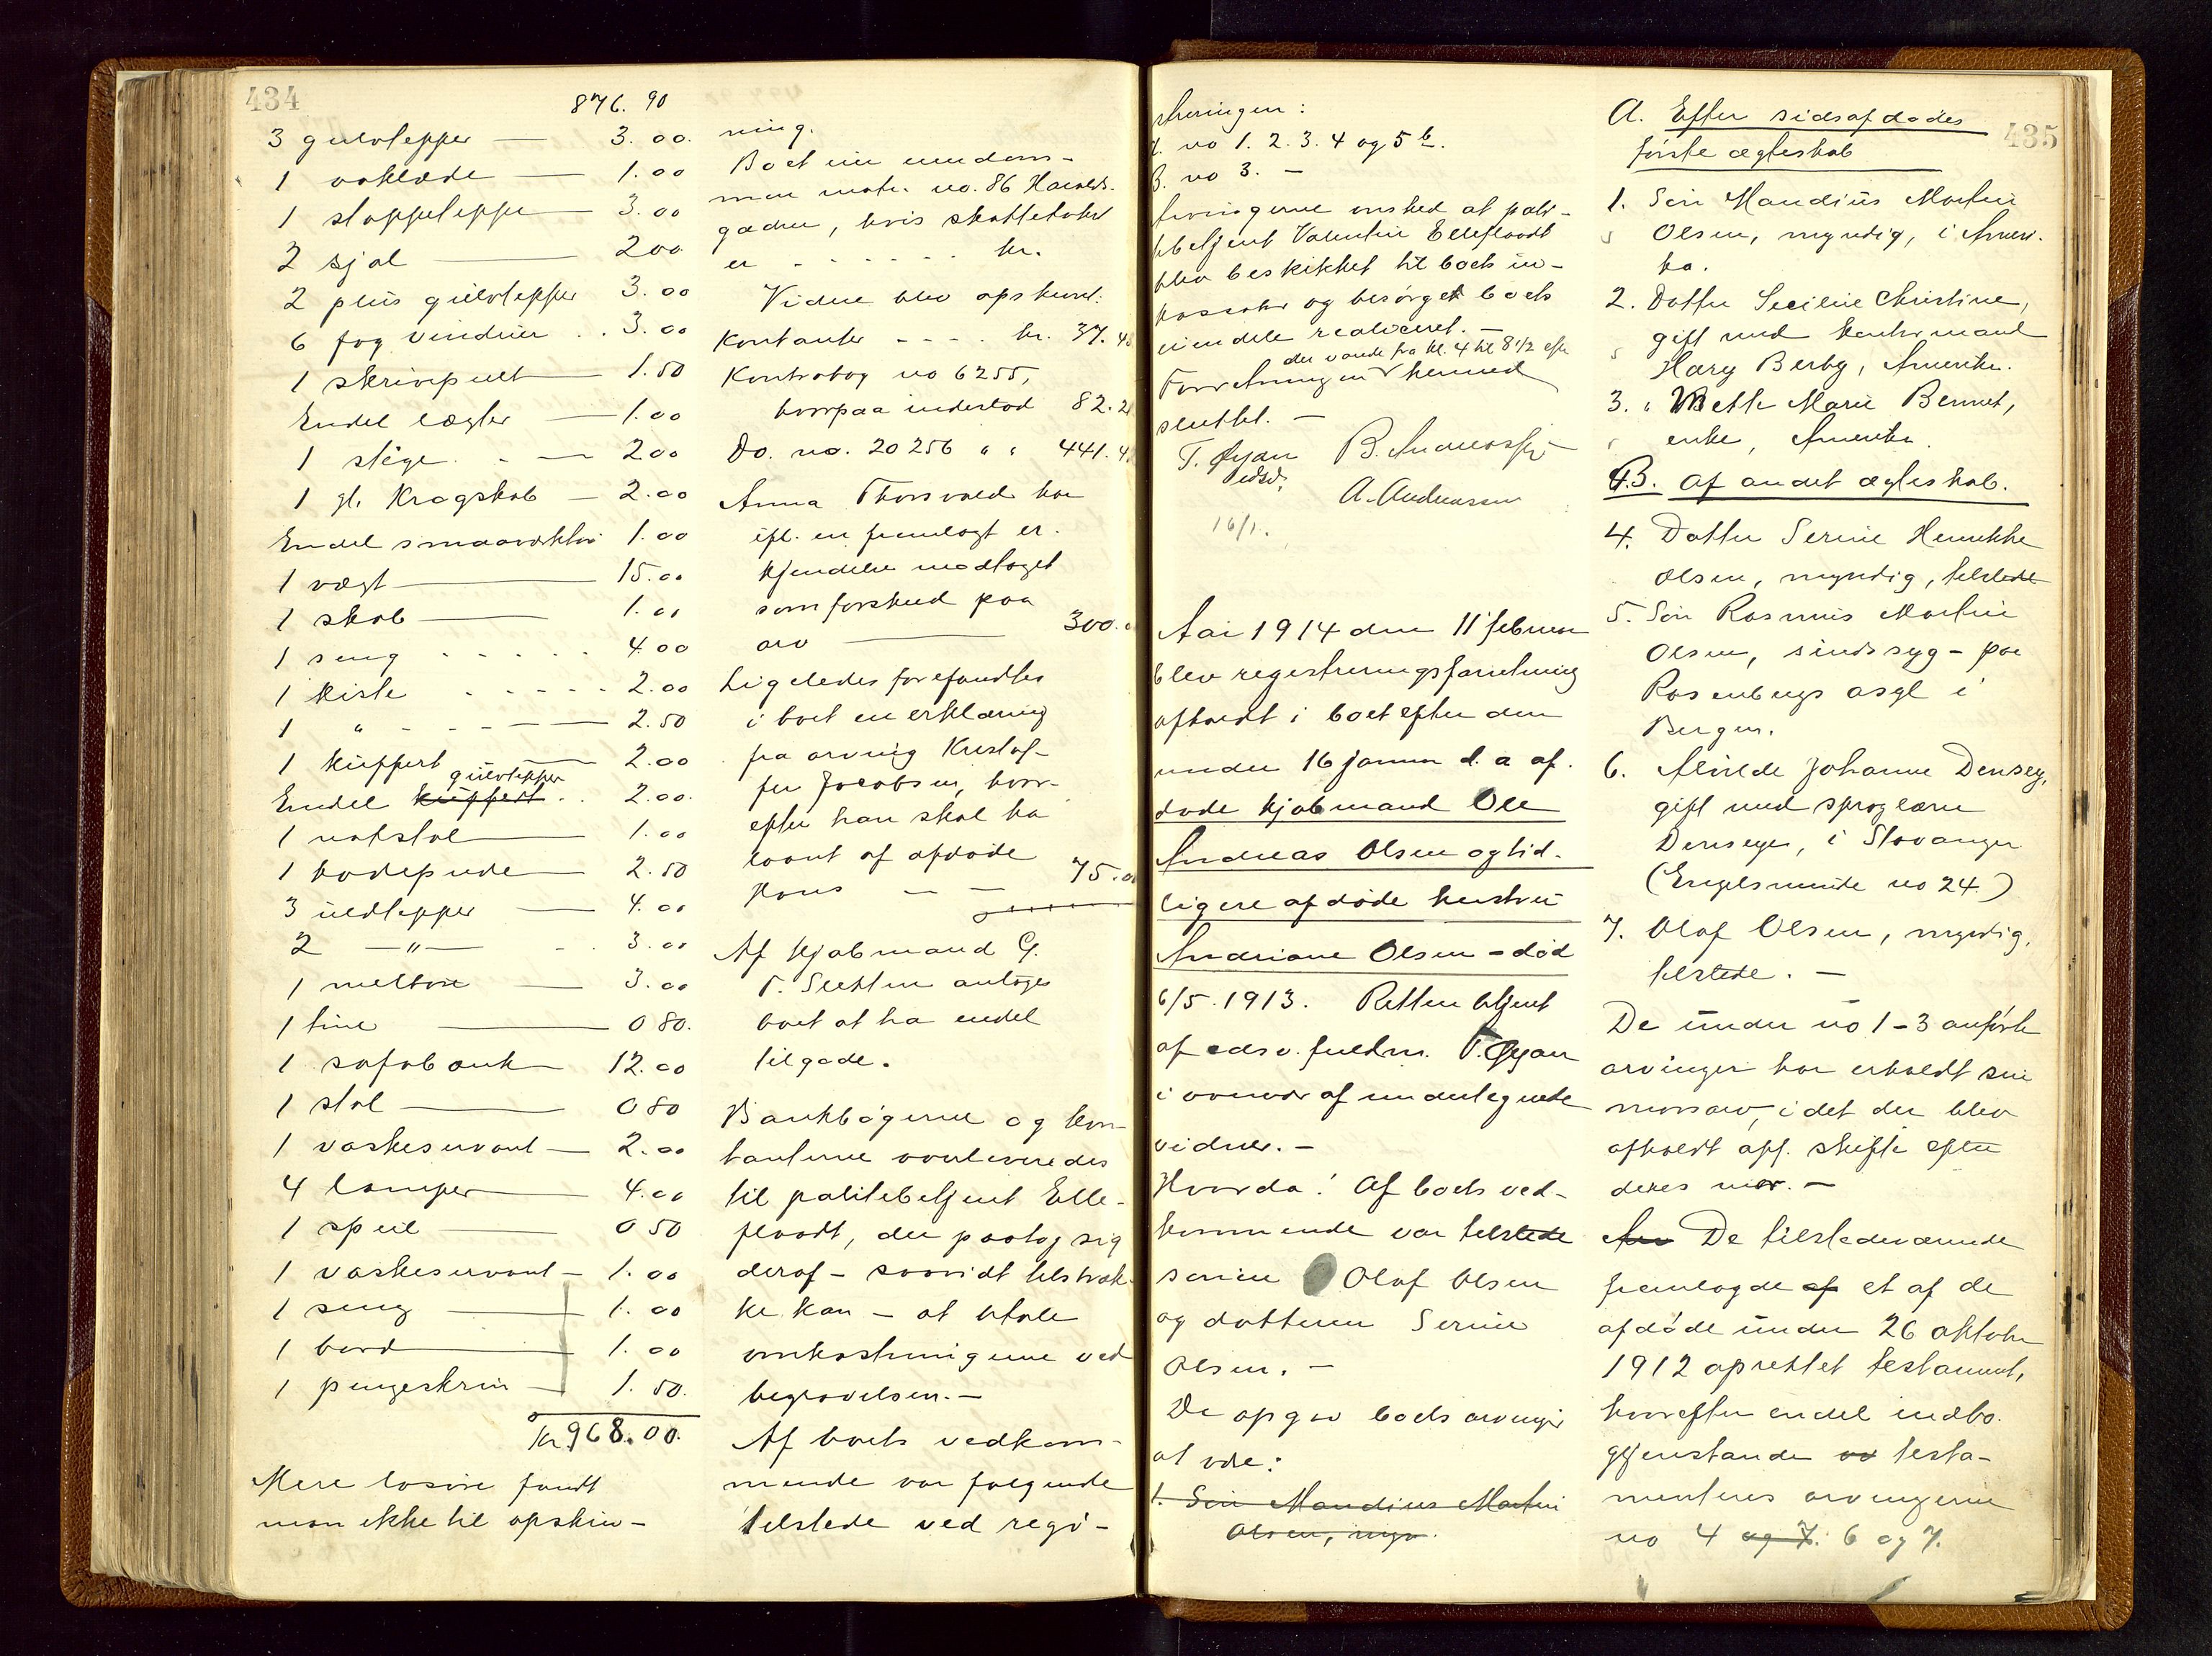 434
876. 90
3 gulvtepper — 3.00.
1 voklæde — 1.00
1 stoppeteppe — 3.00
2 sjal — 200
2 plüs gülvtepper 3.00
6 fag vinduer . . 3.00
1 skrivepult — 1.50
Endel lægter — 1.00
1 stige . - — 200
1 gl. Kragskab — 2.00
Endel smaaverktøi 1.00
1 vægt — 15.00
1 skab — 1.00
1 seng . . . . . 400
1 kiste . . . . . 2.00
1 " - - - — 2.50
1 küffert — 2.00
gülvtepper
Endel küffert . . 2.00.
1 natstol — 1.00
1 hodepude — 2.50
3 uldtepper — 4.00
2 —"— - . 3.00
1 — 3.00
1 tine — 080.
1 sofabænk — 12.00
1 stol — 080
1 vaskeservant — 2.00
4 lamper — 4.00
1 speil — 050
1 vaskeservant — 1.00
1 seng — 1.00
1 bord — 1.00
1 pengeskrin — 1.50.
Kr. 968.00.
Mere løsøre fandt
man ikke til opskriv-
ning.
Boet eier eiendom-
men matr. no. 86 Haralds-
gaden, hvis skattetakst
er - - - - - - kr.
Videre blev opskrevet:
Kontanter - - - - kr. 37.
Kontrabog no 6255,
hvorpaa indestod 82.
Do. no. 20256 " " 441.
Anna Thorsvald har
ifl. en fremlagt er-
kjendelse modtaget
som forskud paa
arv — 300.
Ligeledes forefandtes
i boet en erklæring
fra arving Kristof-
fer Jacobsen, hvor-
efter han skal ha
laant af afdøde
Kans — — 75.
Af kjøbmand G.
T. Sletten antages
boet at ha endel
tilgode.
Bankbøgerne og kon-
tanterne overleveredes
til politibetjent Elle-
flaadt, der paatog sig
deraf – saavidt tilstræk-
ke kan – at betale
omkostningerne ved
begravelsen. —
Af boets vedkom-
mende var følgende
tilstede ved regi-
streringen:
A. no 1. 2. 3. 4 og 5 b.
B. no 3. —
Arvingerne ønsked at poli-
tibetjent Valentin Elleflaadt
blev beskikket til boets in-
kassator og besørget boets
eiendele realiceret. —
der varede fra kl. 4 til 8 1/2 eftr
Forretningen hermed
sluttet. —
T. Øyan B. Andreassen
edsv.
A. Andreassen
16/1.
Aar 1914 den 11 februar
blev registreringsforretning
afholdt i boet efter den
under 16 januar d. a af-
døde kjøbmand Ole
Andreas Olsen og tid-
ligere afdøde hustru
Andriane Olsen – død
6/5. 1913. Retten betjent
af edsv. fuldm. T. Øyan
i overvær af undertegnede
vidner. —
Hvorda: Af boets ved-
kommende var tilstede
sønnen Olaf Olsen
og datteren Serine
Olsen. —
De opgav boets arvinger
at være:
1. Søn Maudius Martin
Olsen, myn.
435
A. Efter sidsafdødes
første ægteskab
1. Søn Maudiüs Martin
Olsen, myndig, i Ameri-
ka.
2. Datter Secilie Christine,
gift med kontormand
Hary Berby, Amerika.
3. " Bette Marie Bennet,
enke, Amerika.
B. af andet ægteskab.
4. Datter Serine Henrikke
Olsen, myndig, tilstede
5. Søn Rasmus Martin
Olsen, sindssyg – paa
Rosenbergs asyl i
Bergen.
6. Alvilde Johanne Densey,
gift med sproglærer
Denseye, i Stavanger
(Engelsminde no 24.)
7. Olaf Olsen, myndig,
tilstede. —
De ünder no 1–3 anførte
arvinger har erholdt sin
morsarv, idet der blev
afholdt off. skifte efter
deres mor. —
De tilstedeværende
fremlagde af et af de
afdøde ünder 26 oktober
1912 oprettet testament,
hvorefter endel indbo-
gjenstande testa-
menteres arvingerne
no 4 og 7. 6 og 7.